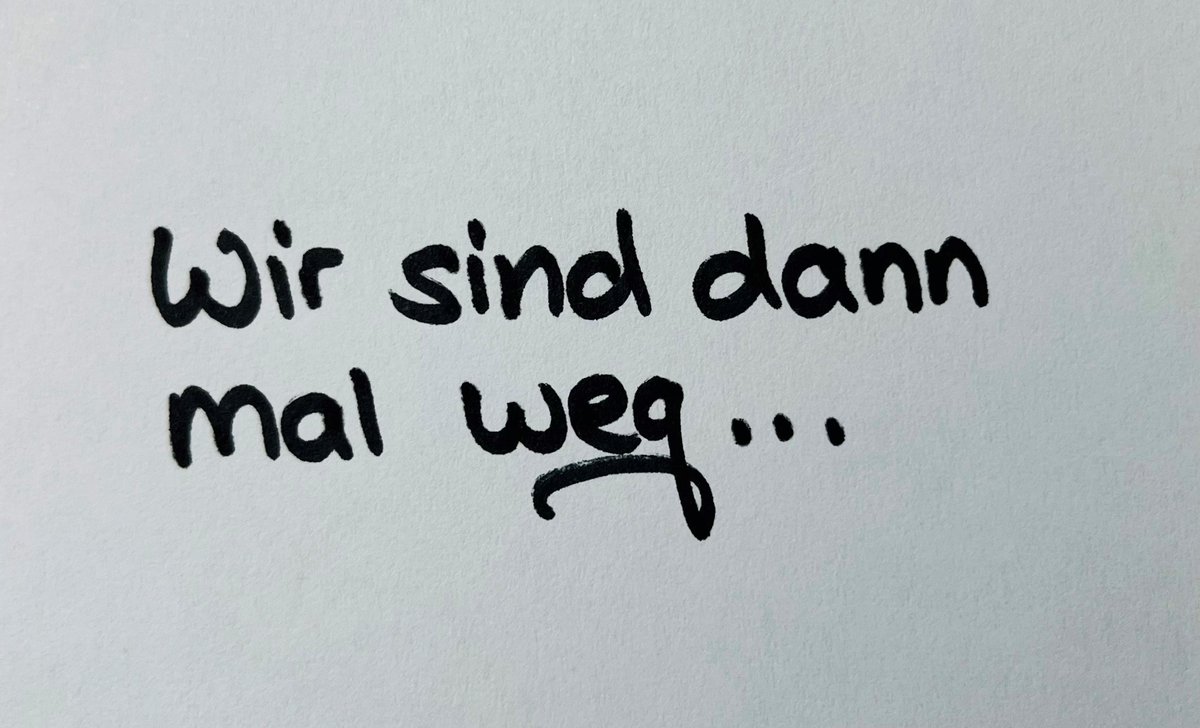 Wir sind dann
mal weg...